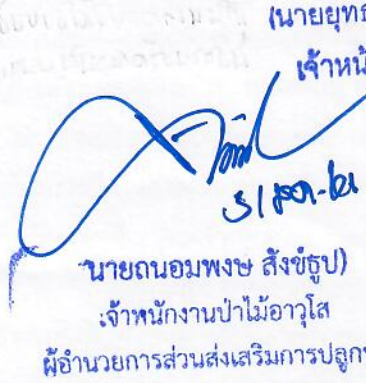 (นายยุทธ
เจ้าหน้
นายถนอมพงษ์ สังข์ธูป)
เจ้าพนักงานป่าไม้อาวุโส
ผู้อำนวยการส่วนส่งเสริมการปลูก